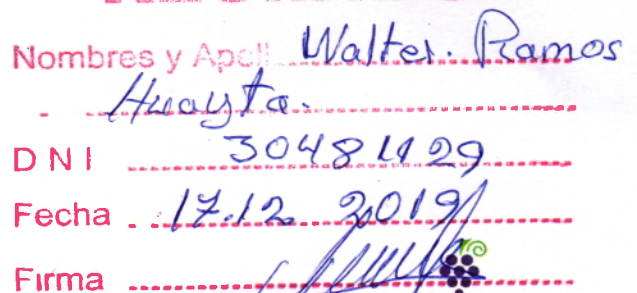 Nombres y Apell Walter. Ramos
Huayta.
DNI 30481129
Fecha 17.12 2019
Firma